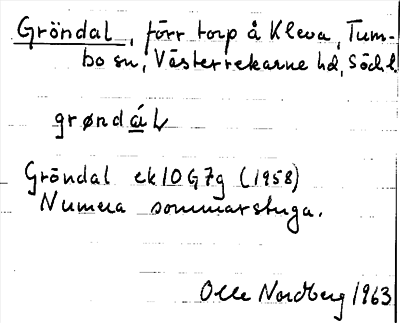 Gröndal, förr torp å Kleva, Tum-
bo sn, Västerrekarne hd, Södl.
grøndáL
Gröndal ek 10G7g (1958)
Numera sommarstuga.
Olle Nordberg 1963